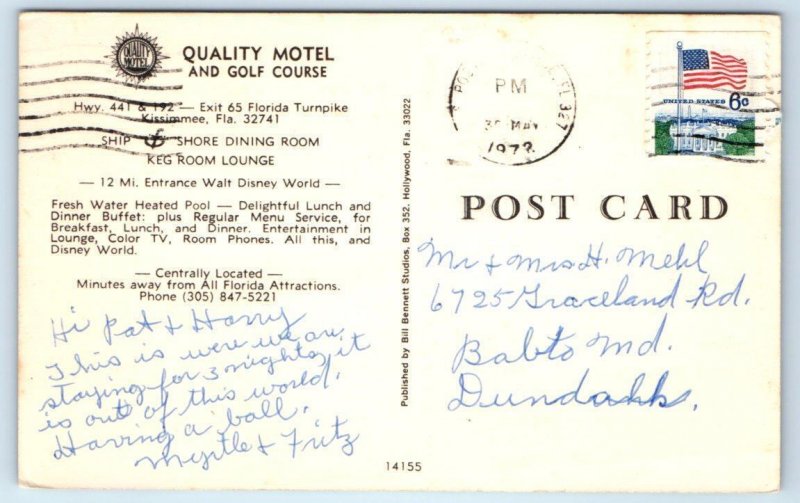 QUALITY MOTEL
QUALITY MOTEL
AND GOLF COURSE
Hwy. 441 & 192 — Exit 65 Florida Turnpike
Kissimmee, Fla. 32741
SHIP & SHORE DINING ROOM
KEG ROOM LOUNGE
— 12 Mi. Entrance Walt Disney World —
Fresh Water Heated Pool — Delightful Lunch and
Dinner Buffet: plus Regular Menu Service, for
Breakfast, Lunch, and Dinner. Entertainment in
Lounge, Color TV, Room Phones. All this, and
Disney World.
— Centrally Located —
Minutes away from All Florida Attractions.
Phone (305) 847-5221
Hi Pat & Harry
This is were we are
staying for 3 nights, it
is out of this world.
Having a ball.
Myrtle & Fritz
Published by Bill Bennett Studios, Box 352, Hollywood, Fla. 33022
14155
PM
30 MAY
1972
327
UNITED STATES 6c
POST CARD
Mr & Mrs H. Mehl
6725 Graceland Rd.
Balto Md.
Dundahk.